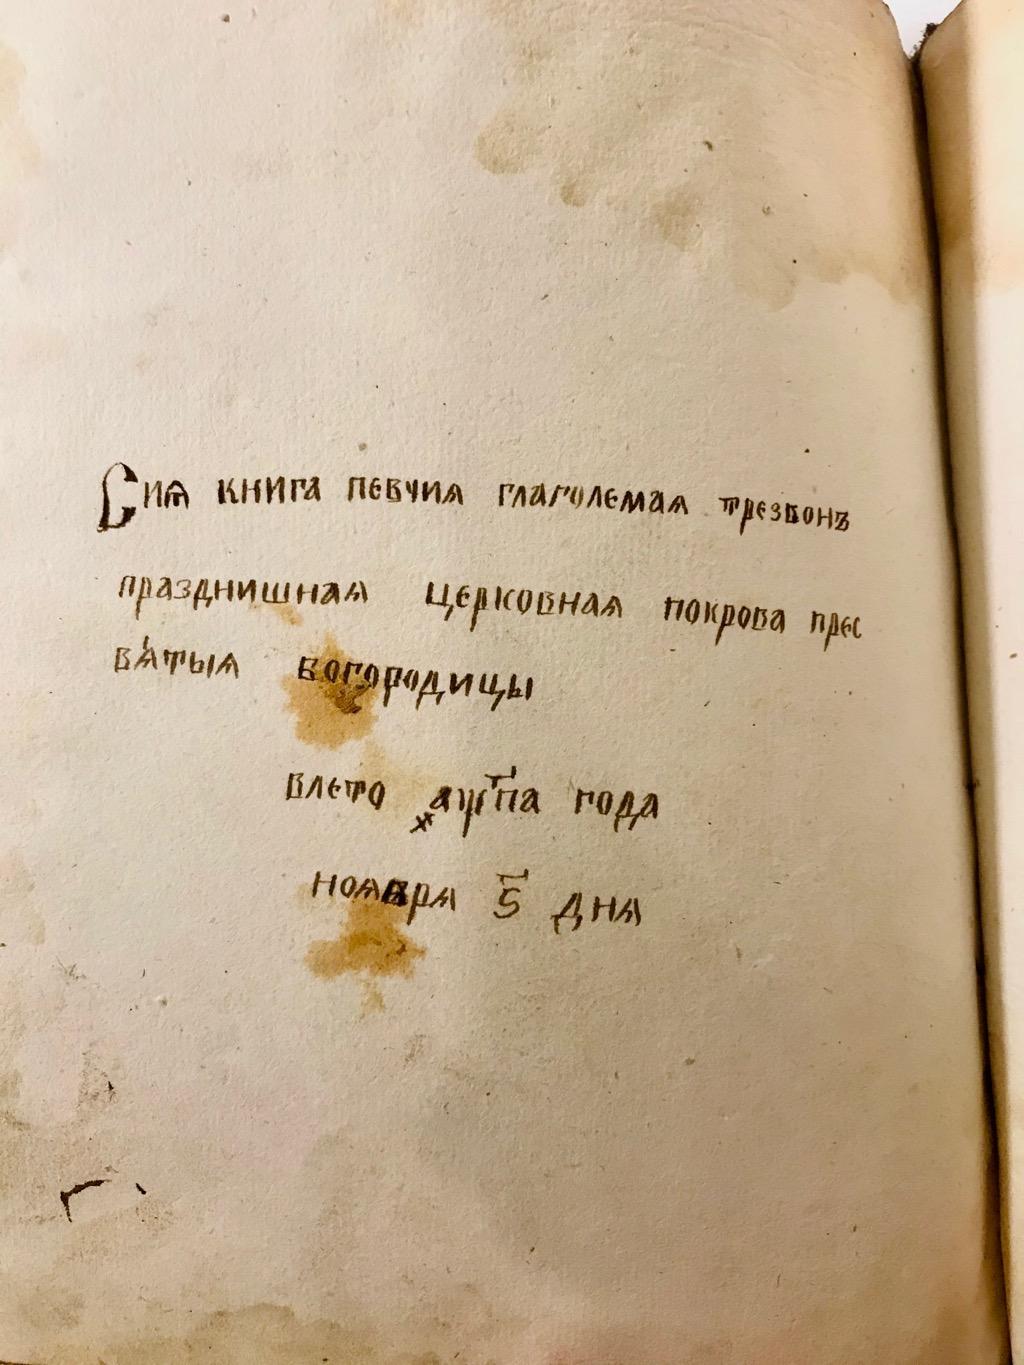 Сиѧ книга певчиѧ глаголемаѧ трезвонъ
празднишнаѧ церковнаѧ покрова прес
вѧ́тыѧ богородицы
влето ҂аѱп҃а года
ноѧбрѧ ѕ҃ днѧ